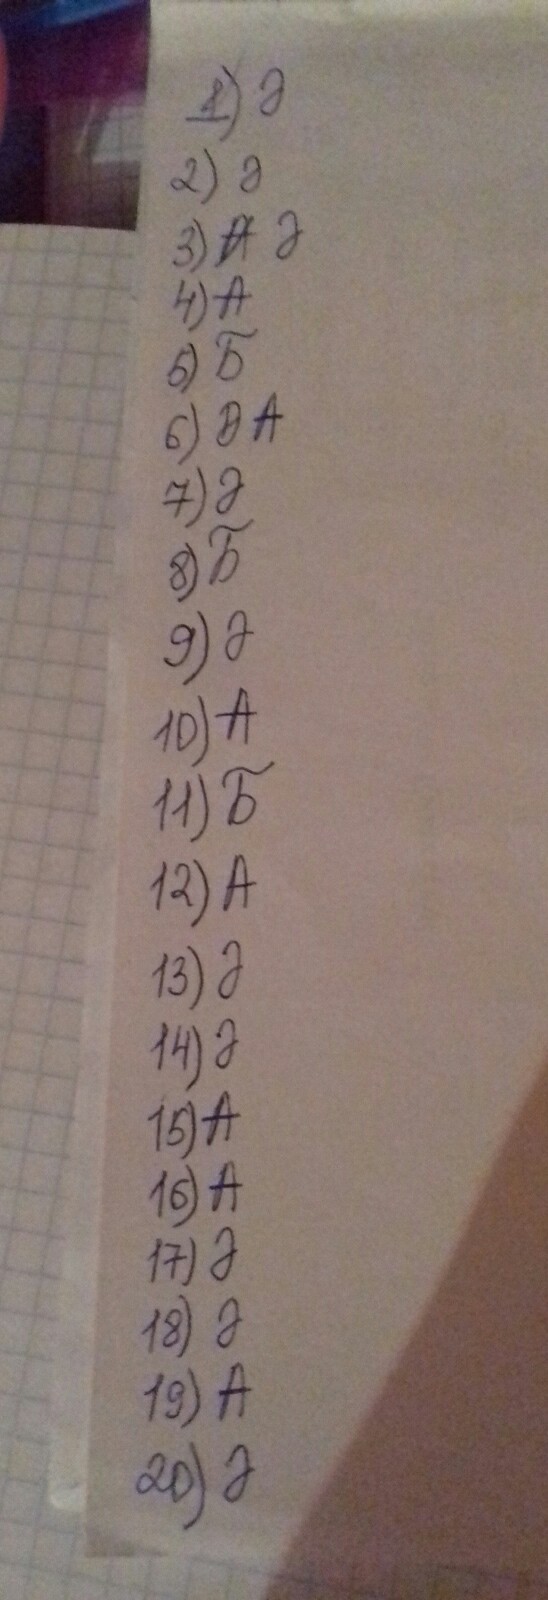 1) Ә
2) Ә
3) А Ә
4) А
5) Б
6) Ә А
7) Ә
8) Б
9) Ә
10) А
11) Б
12) А
13) Ә
14) Ә
15) А
16) А
17) Ә
18) Ә
19) А
20) Ә